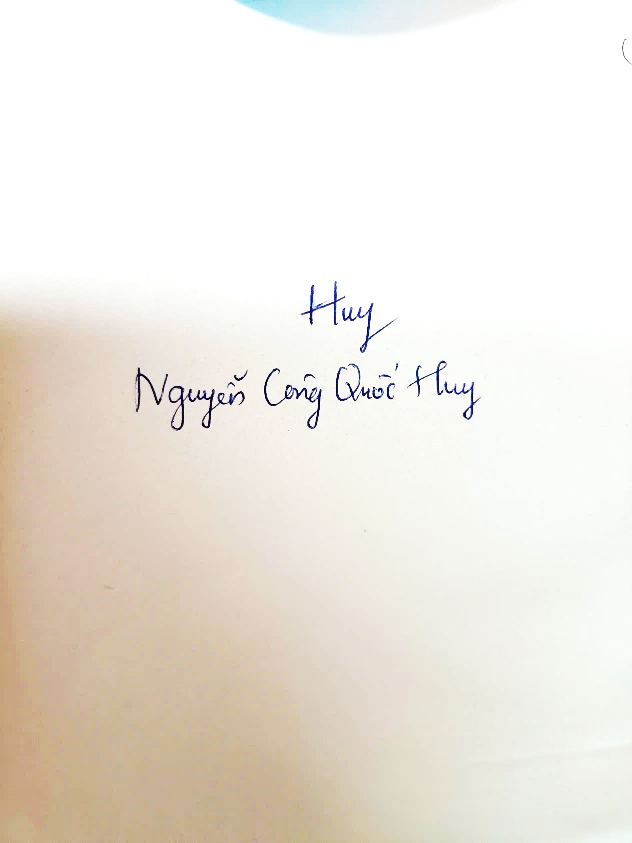 Huy
Nguyễn Công Quốc Huy